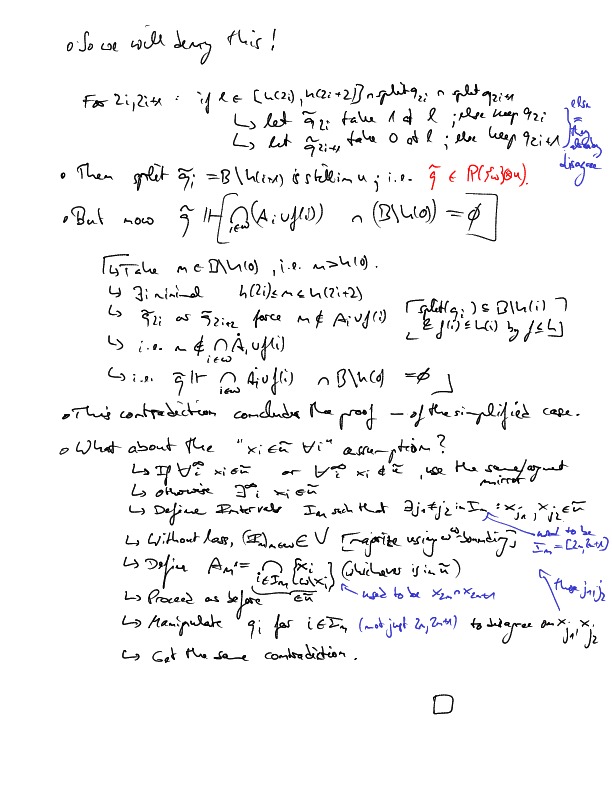 • So we will deny this!
For 2i, 2i+1 : if l ∈ [h(2i), h(2i+2)] ∩ split q_{2i} ∩ split q_{2i+1}
↳ let q̃_{2i} take 1 at l ; else keep q_{2i}
↳ let q̃_{2i+1} take 0 at l ; else keep q_{2i+1}
else = they already disagree
• Then split q̃_i = B \ h(i) is still in u ; i.e. q̃ ∈ P(ω⊗u).
• But now q̃ ⊩ [ ⋂_{i∈ω} (Ȧ_i ∪ f(i)) ∩ (B \ h(0)) = ∅ ]
⌈↳ Take m ∈ B \ h(0), i.e. m > h(0).
↳ ∃i minimal h(2i) ≤ m ≤ h(2i+2)
↳ q̃_{2i} or q̃_{2i+2} force m ∉ A_i ∪ f(i) [split(q_i) ⊆ B \ h(i) & f(i) ≤ h(i) by f ≤ h]
↳ i.e. m ∉ ⋂_{i∈ω} Ȧ_i ∪ f(i)
↳ i.e. q̃ ⊩ ⋂_{i∈ω} Ȧ_i ∪ f(i) ∩ B \ h(0) = ∅ ⌋
• This contradiction concludes the proof — of the simplified case.
• What about the "x_i ∈ ũ ∀i" assumption?
↳ If ∀^∞ i x_i ∈ ũ or ∀^∞ i x_i ∉ ũ, use the same/mirror argument
↳ otherwise ∃^∞ i x_i ∈ ũ
↳ Define Intervals I_m such that ∃ j_1 ≠ j_2 in I_m : x_{j_1}, x_{j_2} ∈ ũ
used to be I_m = [2n, 2n+1]
↳ Without loss, (I_m)_{m∈ω} ∈ V [majorize using ω^ω-bounding]
↳ Define A_m := ⋂_{i∈I_m} {x_i / ω\x_i} (whichever is in ũ)
∈ ũ
used to be x_{2n} ∩ x_{2n+1}
these j_1, j_2
↳ Proceed as before
↳ Manipulate q_i for i ∈ I_m (not just 2n, 2n+1) to disagree on x_{j_1}, x_{j_2}
↳ Get the same contradiction.
□